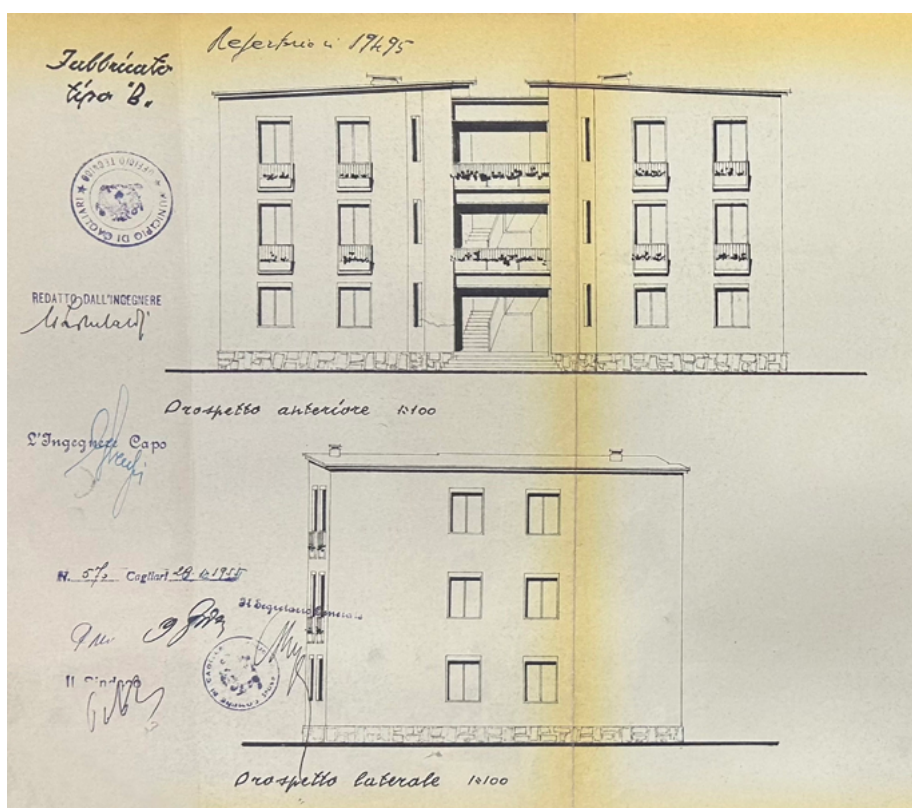 Repertorio n. 19495
Fabbricato
tipo "B"
MUNICIPIO DI CAGLIARI ★ UFFICIO TECNICO ★
REDATTO DALL'INGEGNERE
Prospetto anteriore 1:100
L'Ingegnere Capo
N. Cagliari 1955
Il Segretario Generale
Il Sindaco
Prospetto laterale 1:100